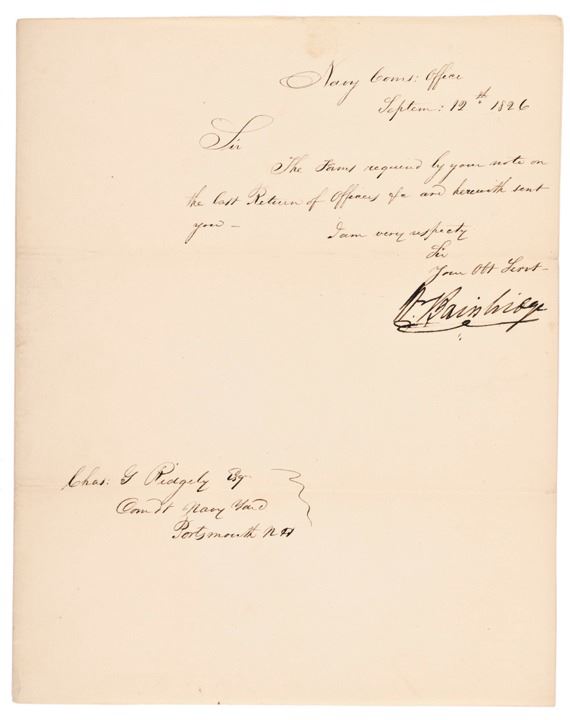 Navy Coms: Office
Septem: 12th 1826
Sir
The Forms required by your note on
the last Return of Officers &c are herewith sent
you –
I am very respecty
Sir
Your Obt Servt –
Wm Bainbridge
Chas: G Ridgely Esq
Comdt Navy Yard
Portsmouth NH